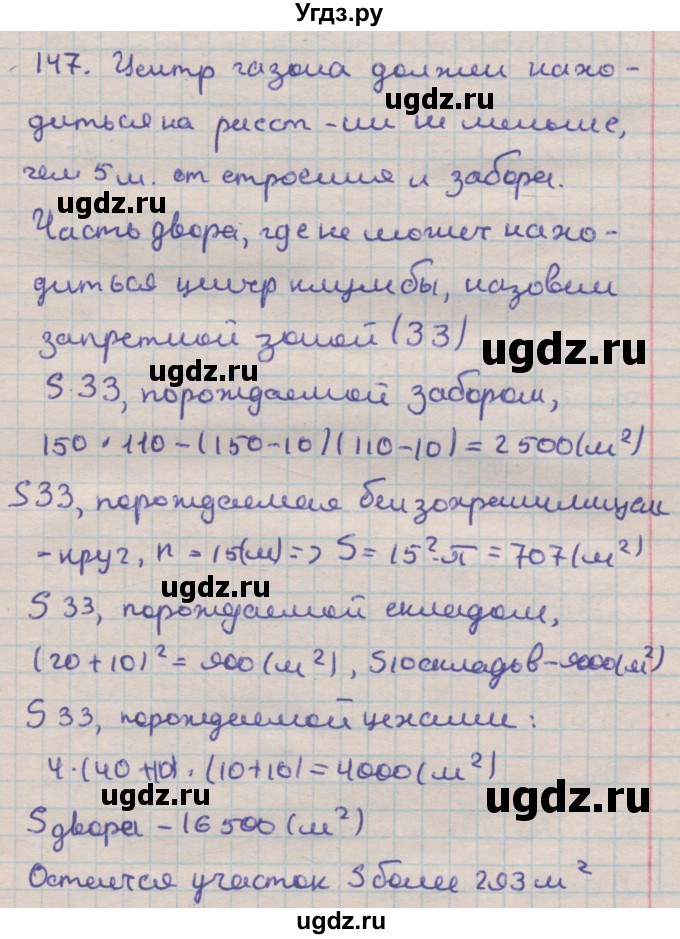 Угдз.ру
147. Центр газона должен нахо-
ugdz.ru
диться на расст-ии не меньше,
чем 5 м. от строения и забора.
ugdz.ru
Часть двора, где не может нахо-
диться центр клумбы, назовем
запретной зоной (ЗЗ)
ugdz.ru
ugdz.ru
S ЗЗ, порождаемой забором,
150 · 110 - (150-10)(110-10) = 2500 (м²)
S ЗЗ, порождаемая бензохранилищем
ugdz.ru
- круг, r = 15(м) => S = 15²·π = 707 (м²)
ugdz.ru
S ЗЗ, порождаемой складом,
(20+10)² = 900 (м²), S 10 складов - 9000 (м²)
S ЗЗ, порождаемой цехами:
4·(40+10)·(10+10) = 4000 (м²)
ugdz.ru
ugdz.ru
S двора - 16500 (м²)
Остается участок S более 293 м²
ugdz.ru